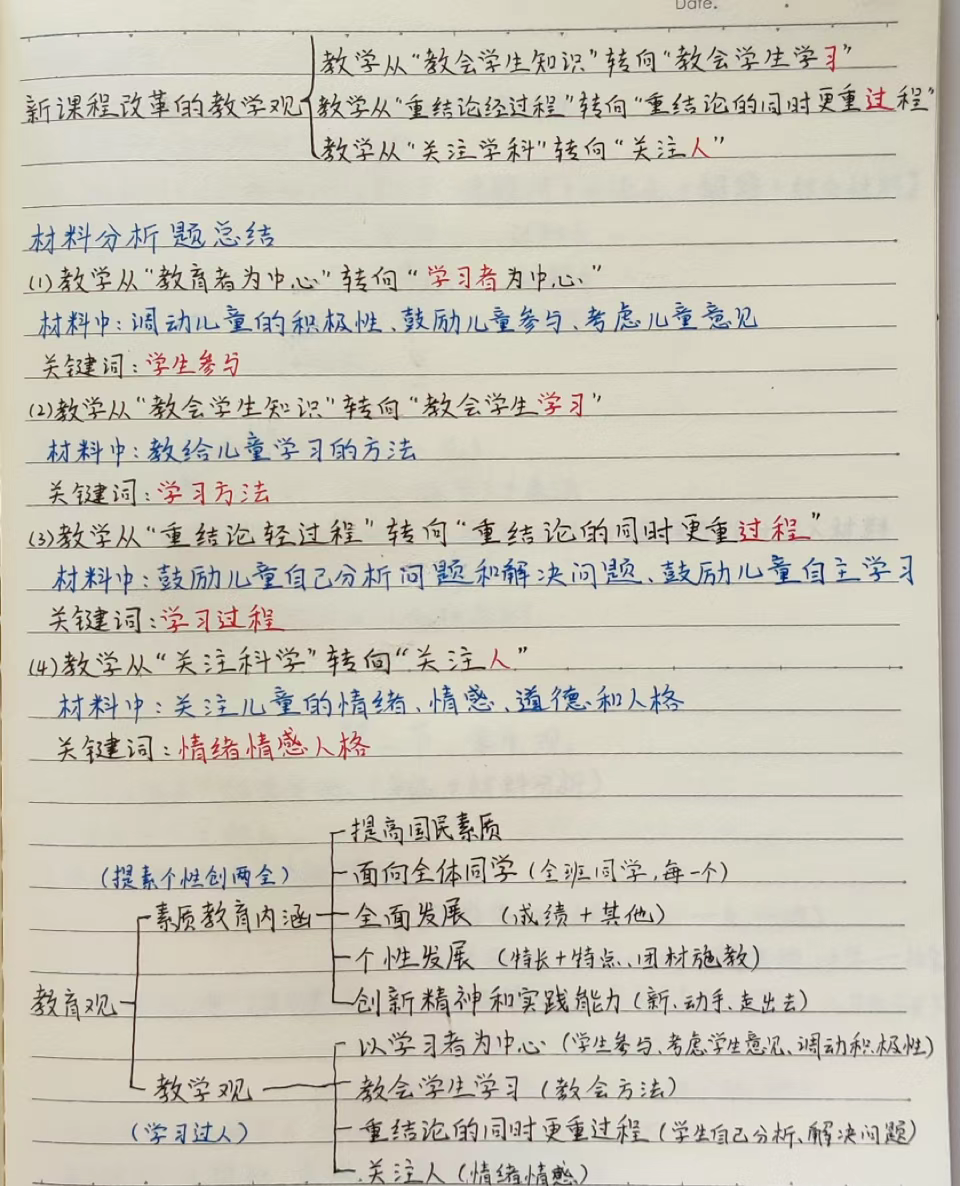 Date.
教学从“教会学生知识”转向“教会学生学习”
新课程改革的教学观
教学从“重结论经过程”转向“重结论的同时更重过程”
教学从“关注学科”转向“关注人”
材料分析题总结
(1)教学从“教育者为中心”转向“学习者为中心”
材料中:调动儿童的积极性、鼓励儿童参与、考虑儿童意见
关键词:学生参与
(2)教学从“教会学生知识”转向“教会学生学习”
材料中:教给儿童学习的方法
关键词:学习方法
(3)教学从“重结论轻过程”转向“重结论的同时更重过程”
材料中:鼓励儿童自己分析问题和解决问题、鼓励儿童自主学习
关键词:学习过程
(4)教学从“关注科学”转向“关注人”
材料中:关注儿童的情绪、情感、道德和人格
关键词:情绪情感人格
提高国民素质
(提素个性创两全)
面向全体同学(全班同学,每一个)
素质教育内涵
全面发展(成绩+其他)
个性发展(特长+特点、因材施教)
教育观
创新精神和实践能力(新、动手、走出去)
以学习者为中心(学生参与、考虑学生意见、调动积极性)
教学观
教会学生学习(教会方法)
(学习过人)
重结论的同时更重过程(学生自己分析、解决问题)
关注人(情绪情感)